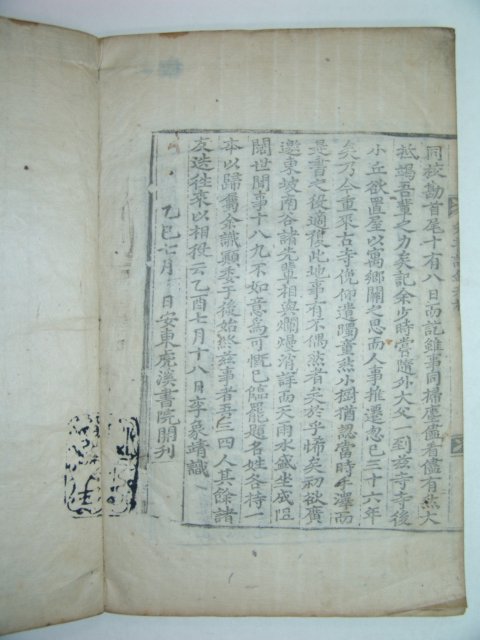 同校勘首尾十有八日而訖雖事同掃塵儘看儘有然大
抵竭吾輩之力矣記余少時嘗隨外大父一到玆寺寺後
小丘欲置屋以寓鄉關之思而人事推遷忽已三十六年
矣乃今重來古寺俛仰遺躅童然小樹猶認當時手澤而
是書之役適復此地事有不偶然者矣於乎悕矣初欲廣
邀東坡南谷諸先輩相與爛熳消詳而天雨水盛坐成阻
闊世間事十八九不如意爲可慨已臨罷題名姓各持一
本以歸雋余識顚委于後始終玆事者吾三四人其餘諸
友迭往來以相役云乙酉七月十八日李象靖識
乙巳七月 日安東虎溪書院開刊